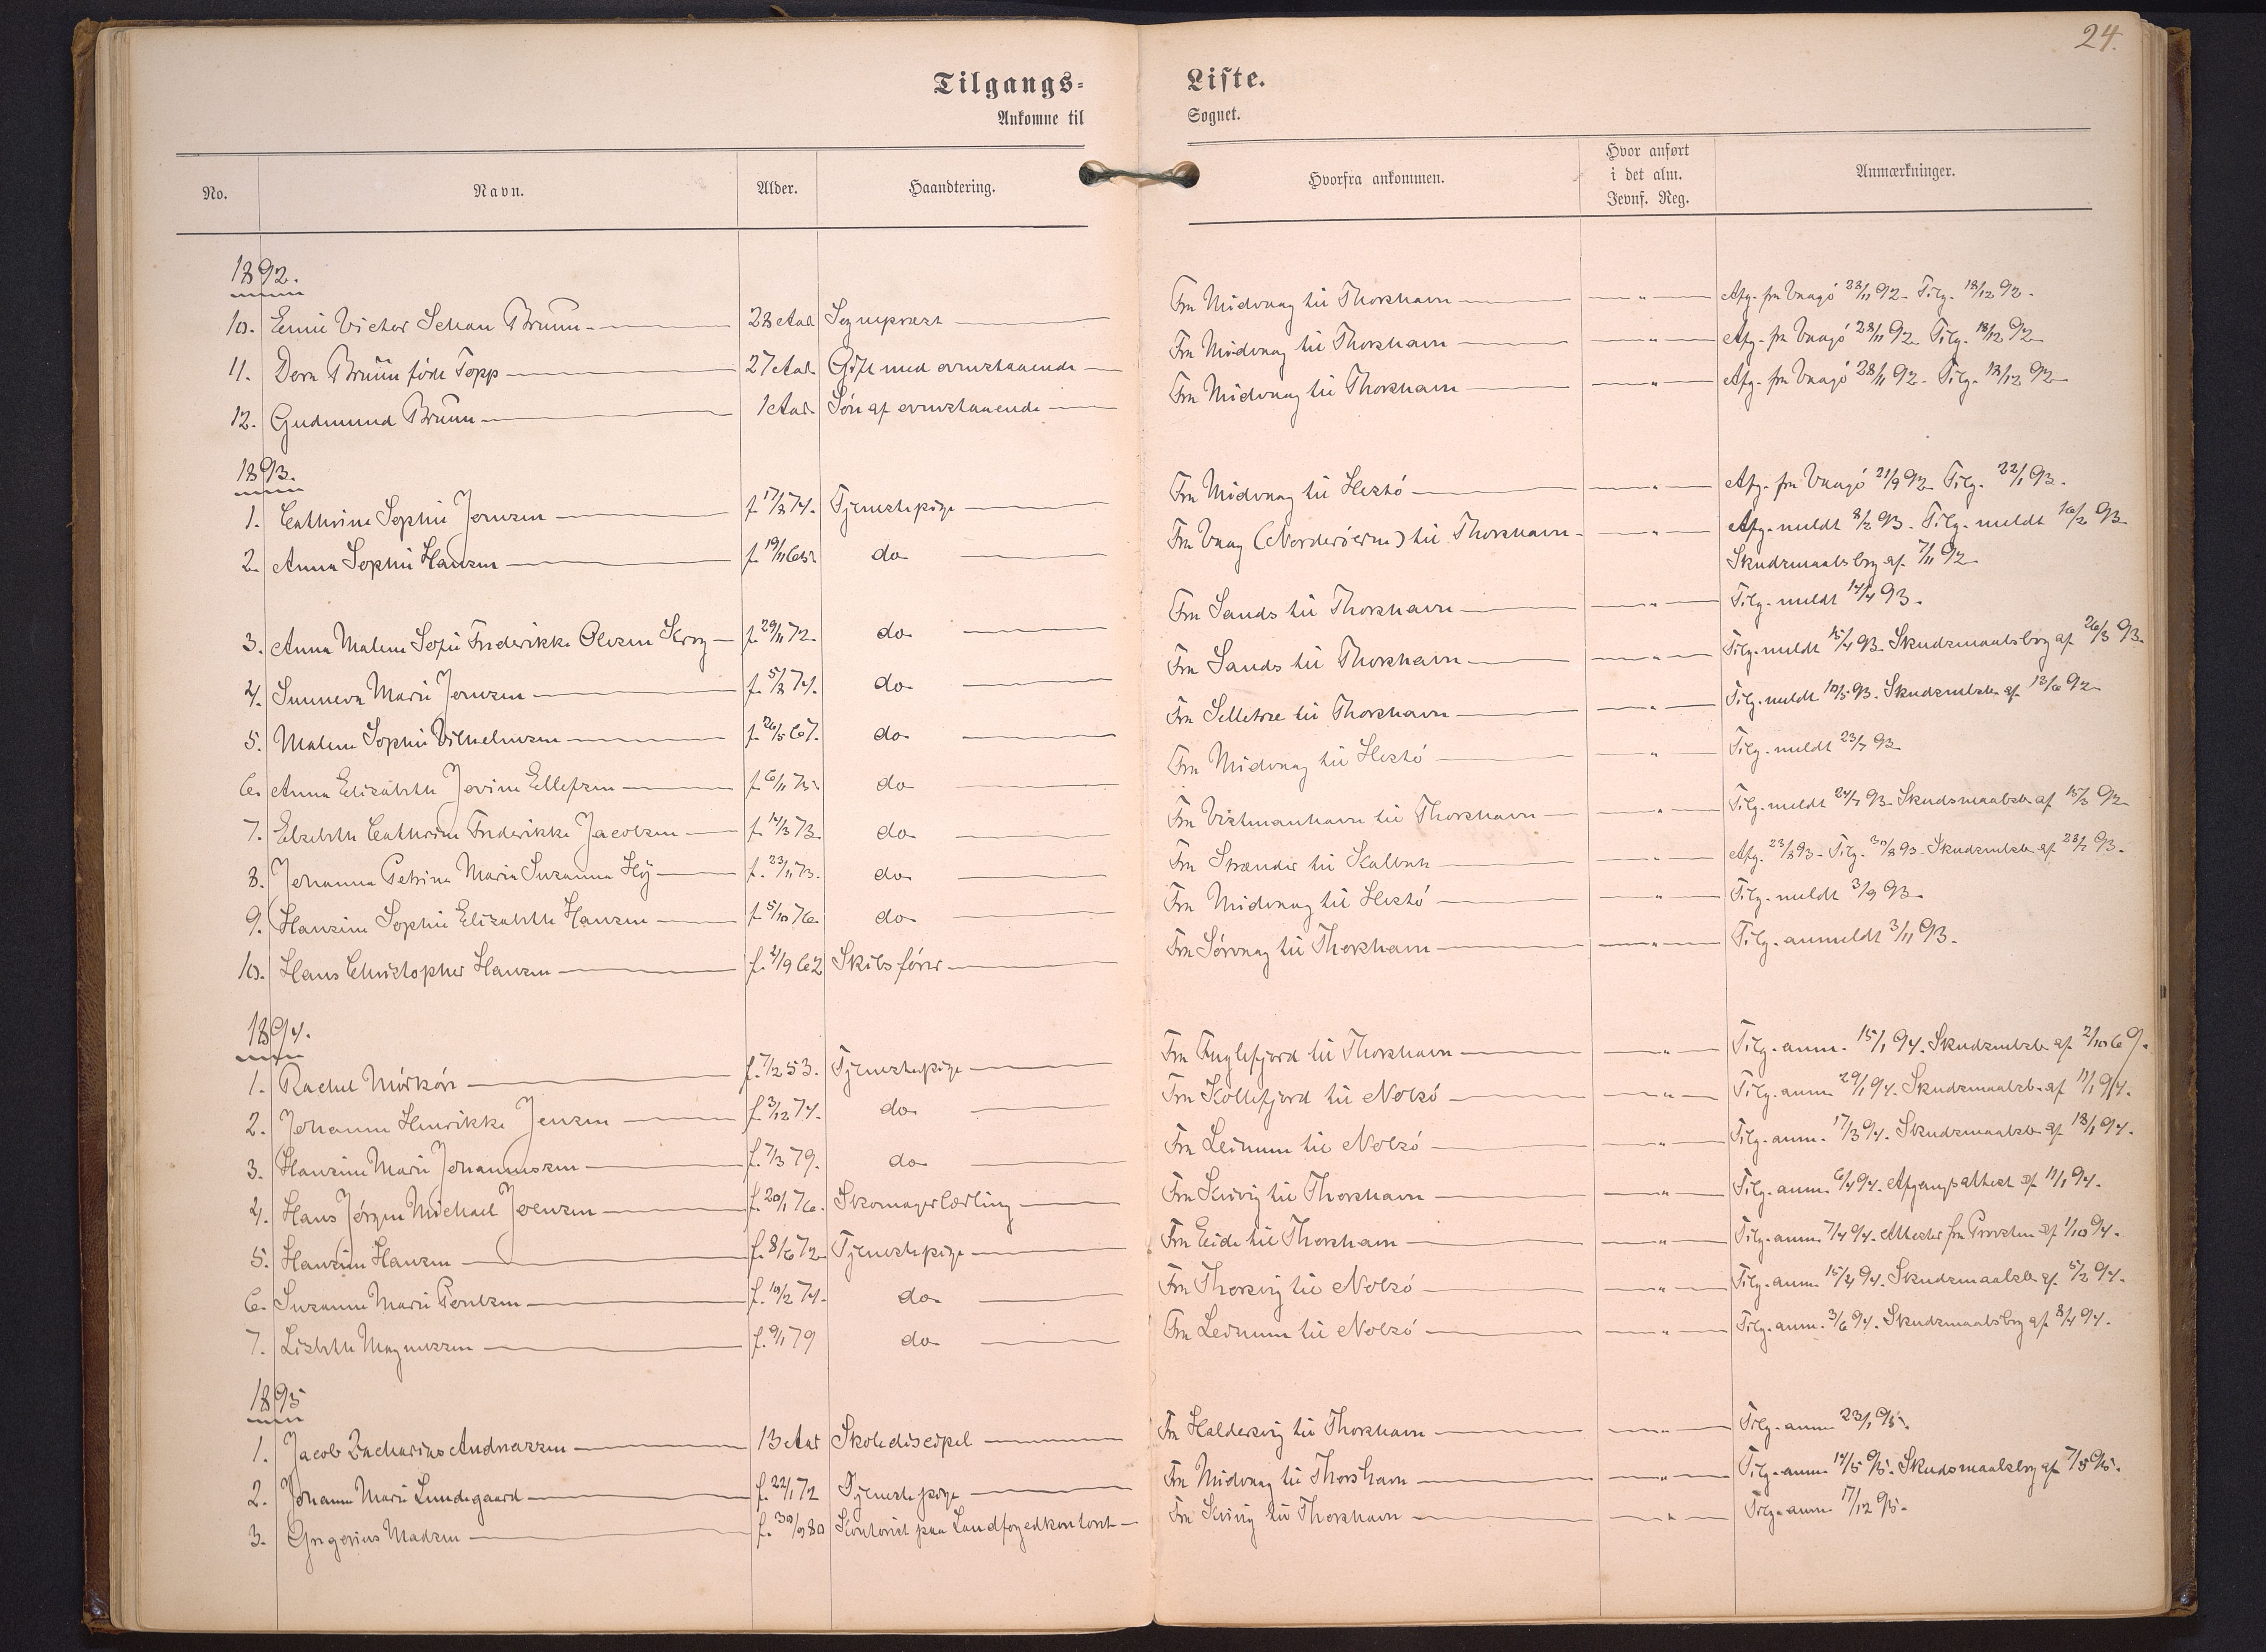 24.
Tilgangs-Liste.
Ankomne til Sognet.
No. Navn. Alder. Haandtering. Hvorfra ankommen. Hvor anført i det alm. Jevnf. Reg. Anmærkninger.
1892.
10. Emil Victor Schau Bruun 28 Aar Sognepræst Fra Midvaag til Thorshavn " Afg. fra Vaagö 28/11 92. Tilg. 18/12 92.
11. Dora Bruün föde Topp 27 Aar Gift med ovenstaaende Fra Midvaag til Thorshavn " Afg. fra Vaagö 28/11 92. Tilg. 18/12 92
12. Gudmund Bruun 1 Aar Sön af ovenstaaende Fra Midvaag til Thorshavn " Afg. fra Vaagö 28/11 92. Tilg. 18/12 92
1893.
1. Cathrine Sophie Joensen f. 17/8 74. Tjenestepige Fra Midvaag til Hestö " Afg. fra Vaagö 21/9 92. Tilg. 22/1 93.
2. Anna Sophie Hansen f. 19/11 65 do Fra Vaag (Norderöerne) til Thorshavn " Afg. meldt 8/2 93. Tilg. meldt 16/2 93
Skudsmaalsbog af 7/11 92
3. Anna Malene Sofie Frederikke Olesen Krog f. 29/11 72 do Fra Sands til Thorshavn " Tilg. meldt 14/4 93.
4. Sunneva Marie Joensen f. 5/8 74. do Fra Sands til Thorshavn " Tilg. meldt 15/4 93. Skudsmaalsbog af 26/3 93.
5. Malene Sophie Vilhelmsen f. 26/5 67. do Fra Selletræ til Thorshavn " Tilg. meldt 10/5 93. Skudsmlsb. af 13/6 92
6. Anna Elisabeth Jovine Ellefsen f. 6/11 75 do Fra Midvaag til Hestö " Tilg. meldt 23/7 93
7. Elsebeth Cathrine Frederikke Jacobsen f. 14/3 73 do Fra Vestmanhavn til Thorshavn " Tilg. meldt 24/7 93. Skudsmaalsb. af 15/3 92
8. Johanna Petrina Maria Susanna Höj f. 23/11 73. do Fra Strænder til Kalbak " Afg. 23/8 93. Tilg. 30/8 93. Skudsmlsb. af 28/7 93.
9. Hansine Sophie Elisabeth Hansen f. 5/10 76. do Fra Midvaag til Hestö " Tilg. meldt 3/9 93.
10. Hans Christopher Hansen f. 2/9 62 Skibsförer Fra Sörvaag til Thorshavn " Tilg. anmeldt 3/11 93.
1894.
1. Rachel Mörköre f. 7/2 53. Tjenestepige Fra Fuglefjord til Thorshavn " Tilg. anm. 15/1 94. Skudsmlsb. af 2/10 69.
2. Johanne Henrikke Jensen f. 3/12 74. do Fra Kollefjord til Nolsö " Tilg. anm. 29/1 94. Skudsmaalsb. af 11/1 94.
3. Hansine Marie Johannesen f. 7/3 79. do Fra Ledrum til Nolsö " Tilg. anm. 17/3 94. Skudsmaalsb. af 18/1 94.
4. Hans Jörgen Michael Joensen f. 20/1 76. Skomagerlærling Fra Kvivig til Thorshavn " Tilg. anm. 6/4 94. Afgangsattest af 11/1 94.
5. Hansine Hansen f. 8/6 72 Tjenestepige Fra Eide til Thorshavn " Tilg. anm. 7/4 94. Attester fra Provsten af 1/10 94.
6. Susanne Marie Poulsen f. 10/2 74. do Fra Thorsvig til Nolsö " Tilg. anm. 15/4 94. Skudsmaalsb. af 5/2 94.
7. Lisbeth Magnussen f. 9/1 79 do Fra Ledrum til Nolsö " Tilg. anm. 3/6 94. Skudsmaalsbog af 8/4 94.
1895
1. Jacob Zacharias Andreassen 13 Aar Skolediscipel Fra Haldersvig til Thorshavn " Tilg. anm 23/1 95.
2. Johanne Marie Lundegaard f. 22/1 72 Tjenestepige Fra Midvaag til Thorshavn " Tilg. anm 14/5 95. Skudsmaalsbog af 7/5 95.
3. Gregorius Madsen f. 30/9 80 Kontorist paa Landfogedkontoret Fra Kvivig til Thorshavn " Tilg. anm 17/12 95.